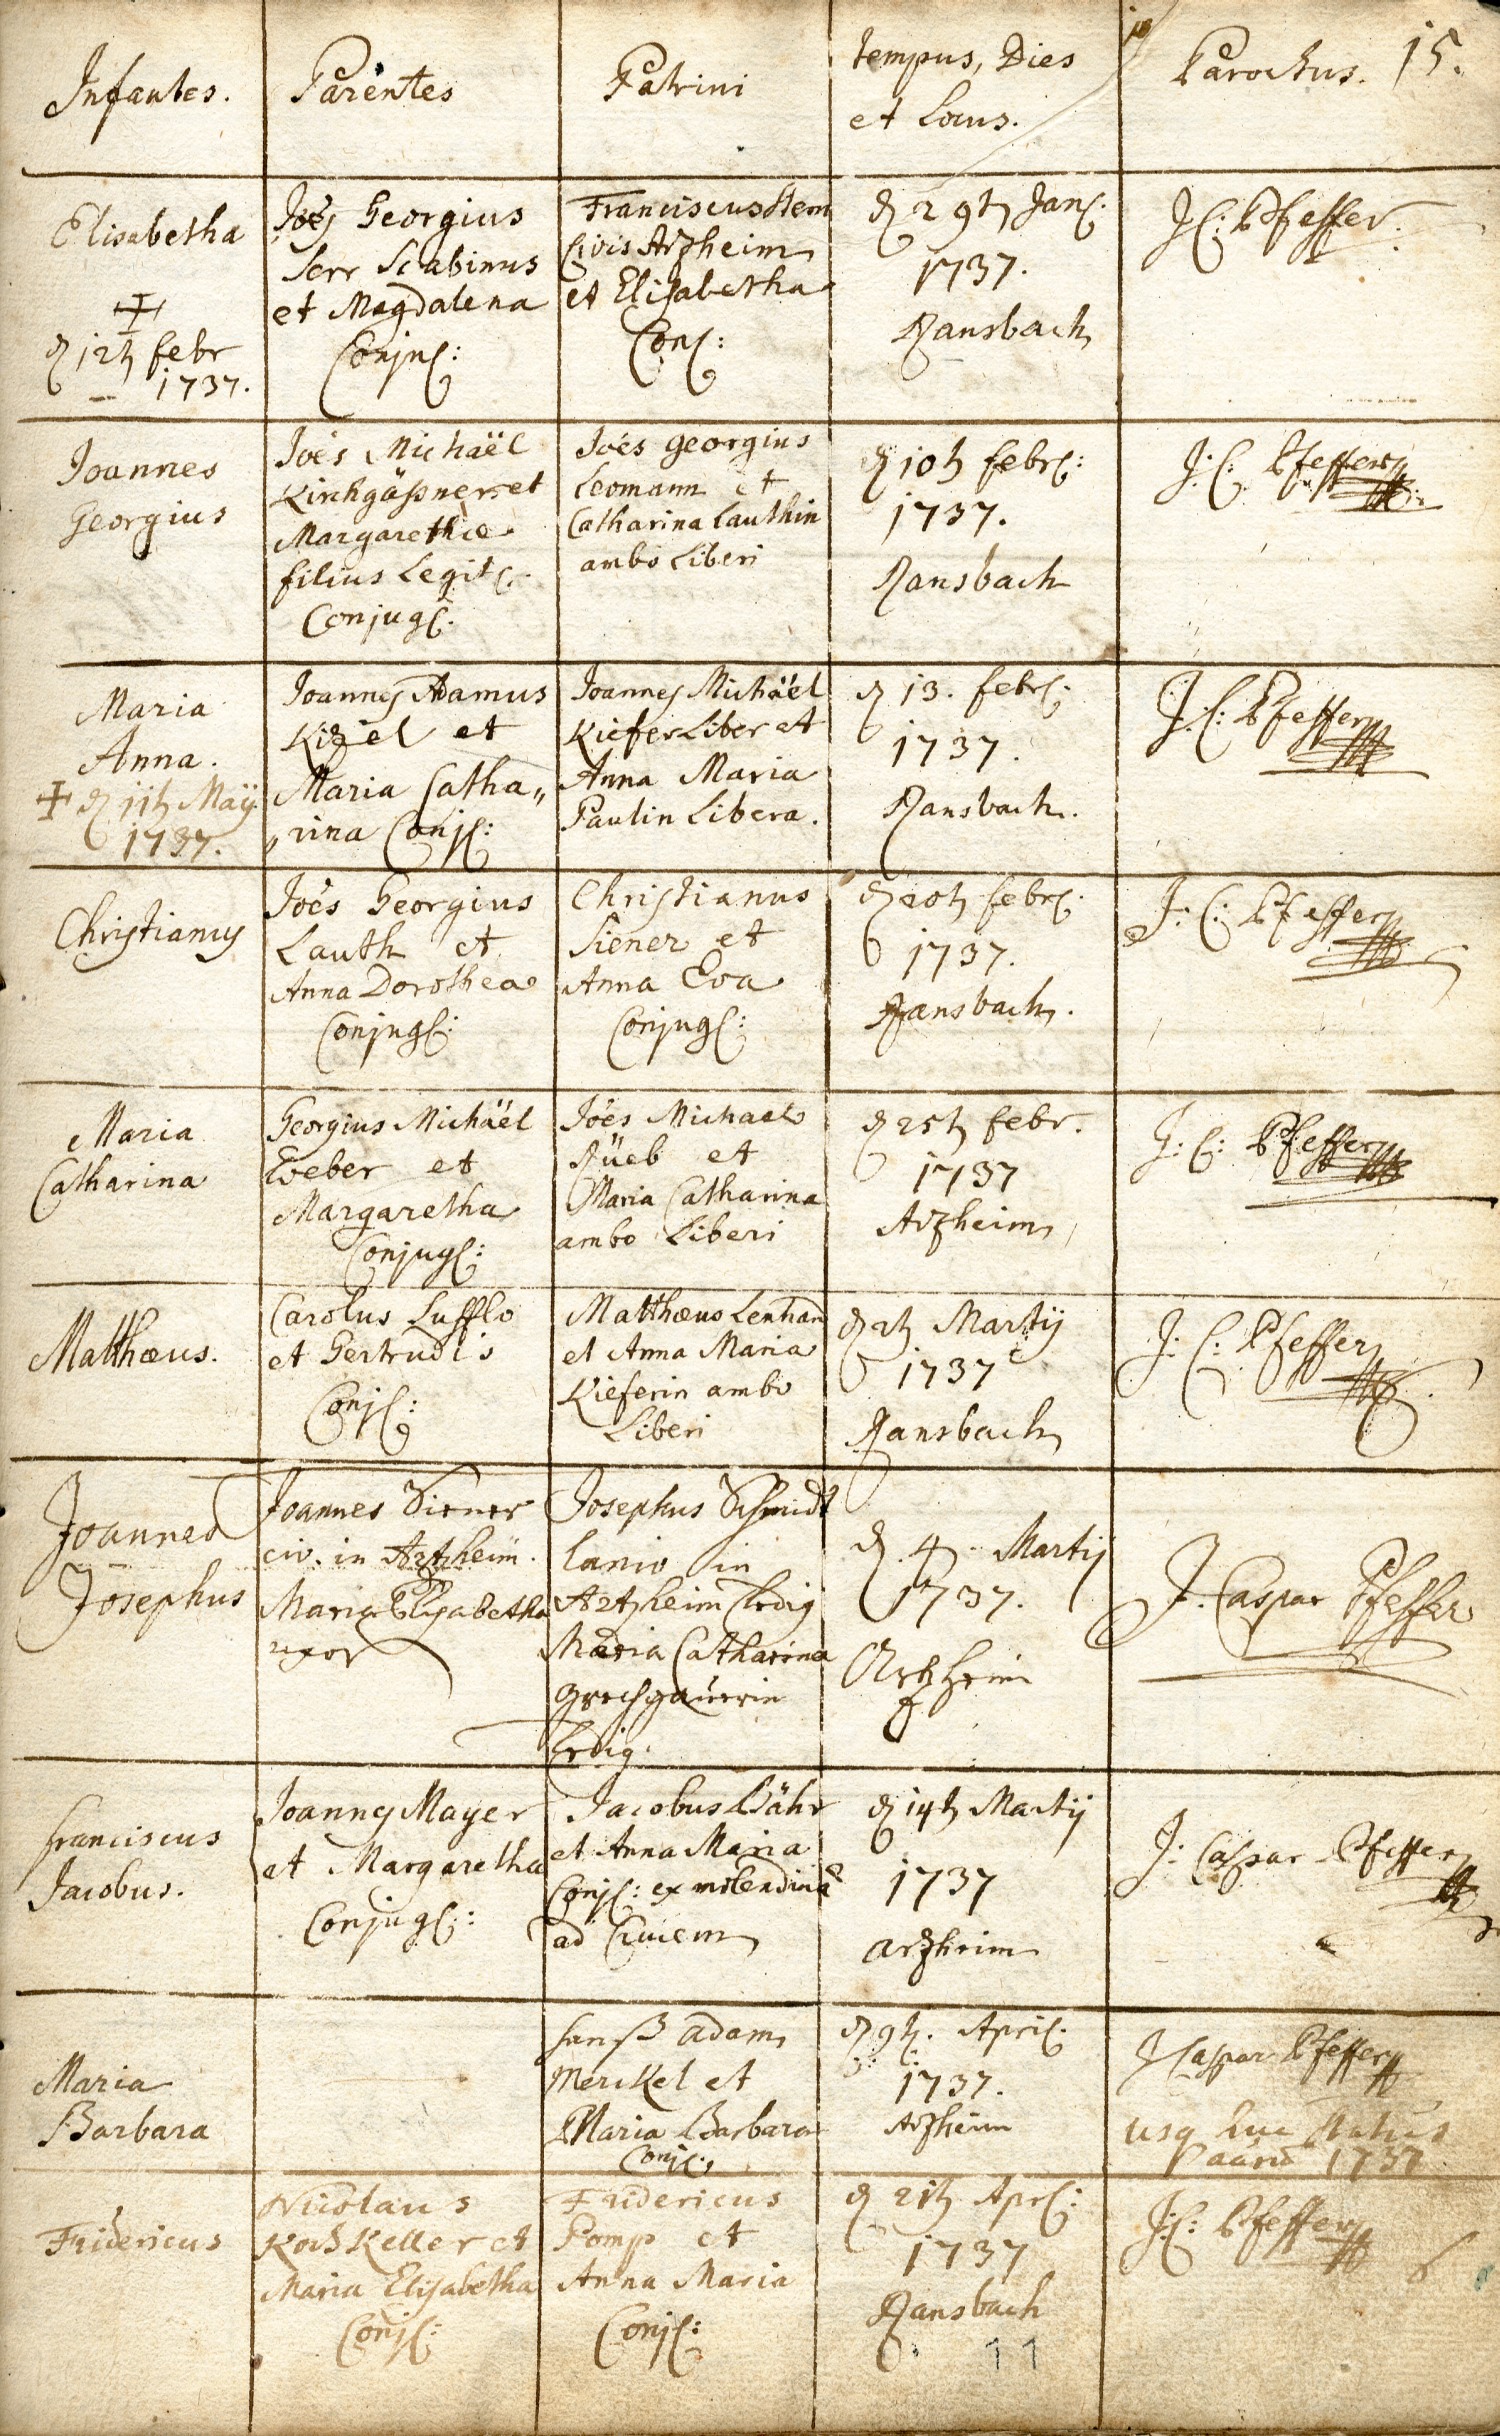 Infantes.
Parentes
Patrini
tempus, Dies
et Locus.
Parochus.
15.
Elisabetha
d 12t febr
1737.
Joës Georgius
Serr Scabinus
et Magdalena
Conjuc:
Franciscus Stem
Civis Arzheim
et Elisabetha
Conc:
d 29t Jan:
1737.
Ransbach
J C: Pfeffer.
Joannes
Georgius
Joës Michaël
Kirchgäßner et
Margarethæ
filius Legit:
Conjug:
Joës georgius
Leomann et
Catharina Lauthin
ambo Liberi
d 10t febr:
1737.
Ransbach
J: C: Pfeffer
Maria
Anna.
d 11t Maÿ
1737.
Joannes Adamus
Kizel et
Maria Catha„
„rina Conj:
Joannes Michäel
Kiefer Liber et
Anna Maria
Paulin Libera.
d 13. febr:
1737.
Ransbach.
J: C: Pfeffer
Christianus
Joës Georgius
Lauth et
Anna Dorothea
Conjug:
Christianus
Siener et
Anna Eva
Conjug:
d 20t febr:
1737.
Ransbach.
J: C: Pfeffer
Maria
Catharina
Georgius Michäel
Weber et
Margaretha
Conjug:
Joës Michael
Rüeb et
Maria Catharina
ambo Liberi
d 25t febr.
1737
Arzheim
J: C: Pfeffer
Matthæus.
Carolus Lufflo
et Gertrudis
Conj:
Matthæus Lenhard
et Anna Maria
Kieferin ambo
Liberi
d 2t Martij
1737
Ransbach
J: C: Pfeffer
Joannes
Josephus
Joannes Siener
civ. in Artzheim.
Maria Elisabetha
uxor
Josephus Schmidt
lanio in
Artzheim ledig
Maria Catharina
ledig.
d. 4. Martij
1737.
Artzheim
J. Caspar Pfeffer
Franciscus
Jacobus.
Joannes Mayer
et Margaretha
Conjug:
Jacobus Bähr
et Anna Maria
Conj: ex molendina
ad
d 14t Martij
1737
arzheim
J: Caspar Pfeffer
Maria
Barbara
hanß adam
Merckel et
Maria Barbara
Conj:
d 9t. April:
1737.
Arzheim
J Caspar Pfeffer
usq huc
1737
Fridericus
Nicolaus
Koch Keller et
Maria Elisabetha
Conj:
Fridericus
Pomp et
Anna Maria
Conj:
d 21t Apr:
1737
Ransbach
J: C: Pfeffer
11